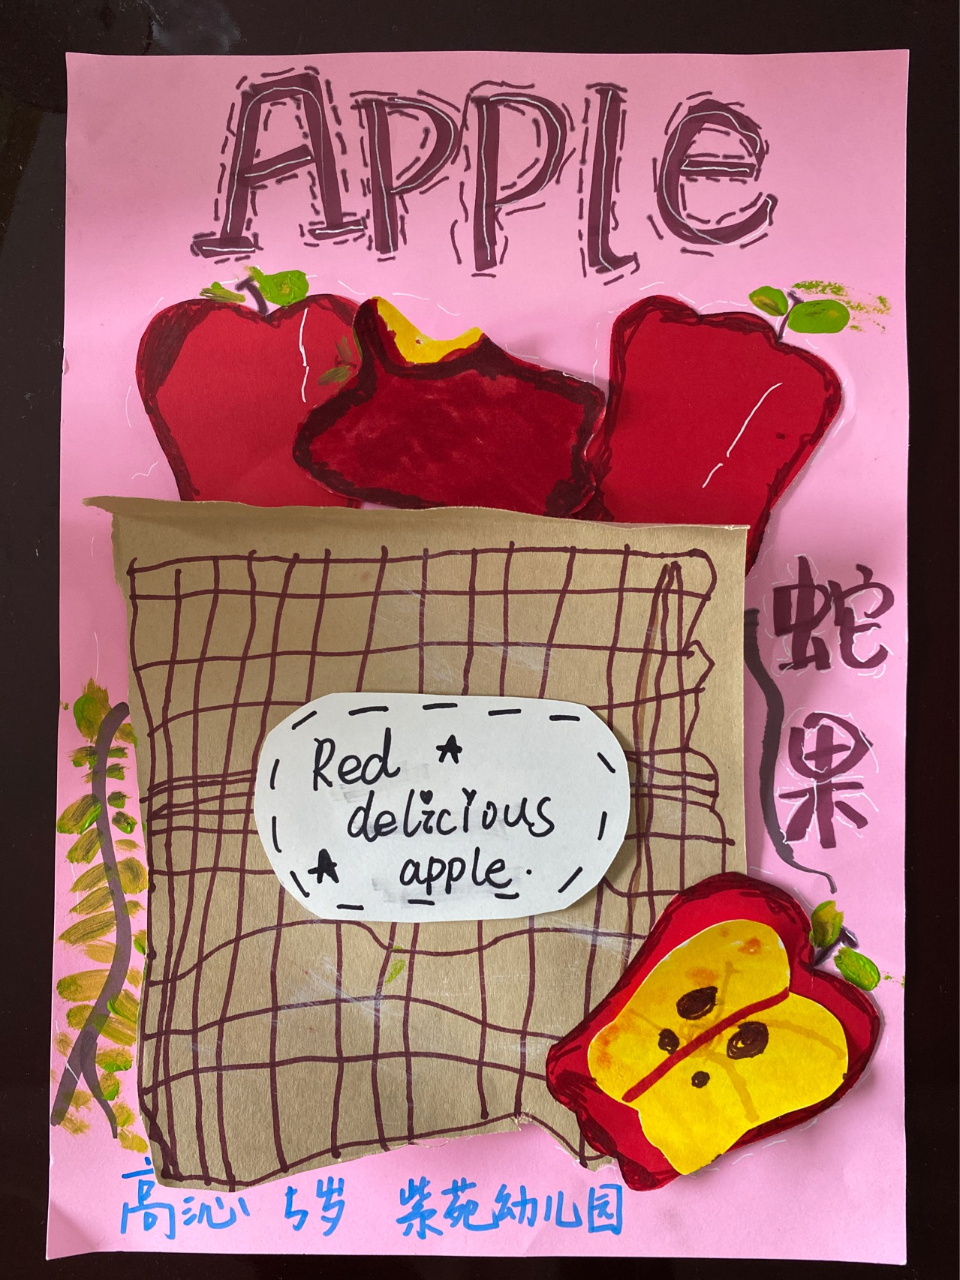 APPle
Red
delicious
apple.
蛇
果
高沁 5岁 紫苑幼儿园